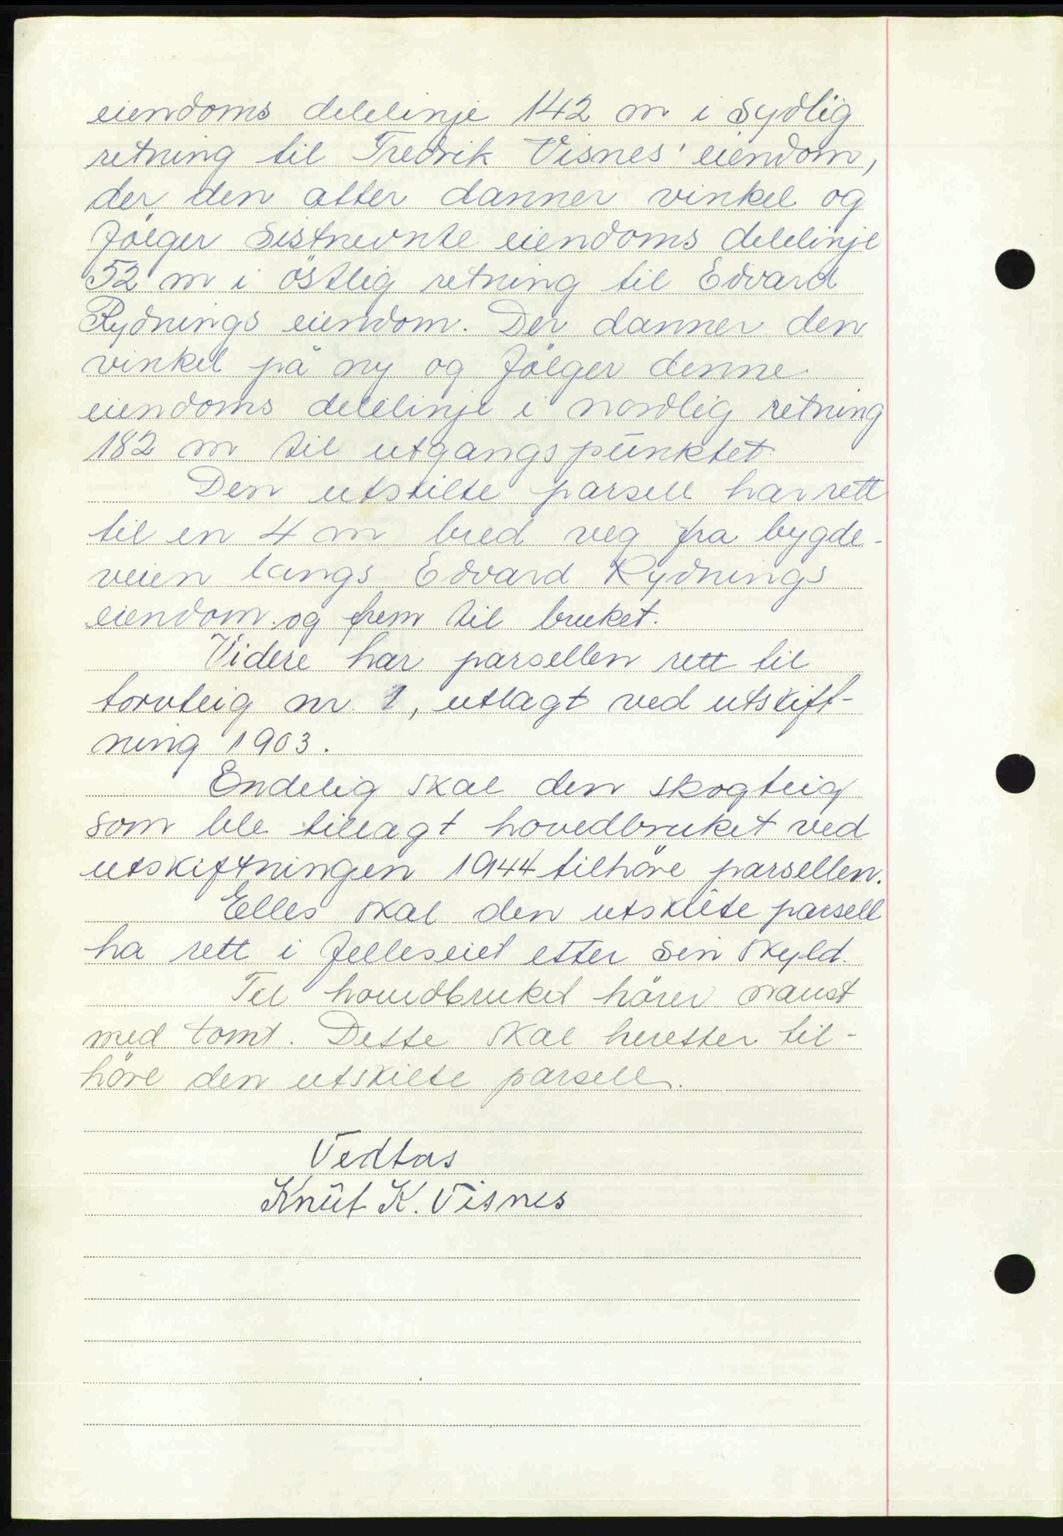 eiendoms delelinje 142 m i sydlig
retning til Fredrik Visnes' eiendom,
der den atter danner vinkel og
følger sistnevnte eiendoms delelinje
52 m i östlig retning til Edvard
Rydnings eiendom. Der danner den
vinkel på ny og følger denne
eiendoms delelinje i nordlig retning
182 m til utgangspunktet.
Den utskilte parsell har rett
til en 4 m bred veg fra bygde-
veien langs Edvard Rydnings
eiendom og frem til bruket.
Videre har parsellen rett til
torvteig nr 1, utlagt ved utskift-
ning 1903.
Endelig skal den skogteig
som ble tillagt hovedbruket ved
utskiftningen 1944 tilhöre parsellen.
Elles skal den utskilte parsell
ha rett i felleseiet etter sin skyld.
Til hovedbruket hörer naust
med tomt. Dette skal heretter til-
höre den utskilte parsell.
Vedtas
Knut K. Visnes